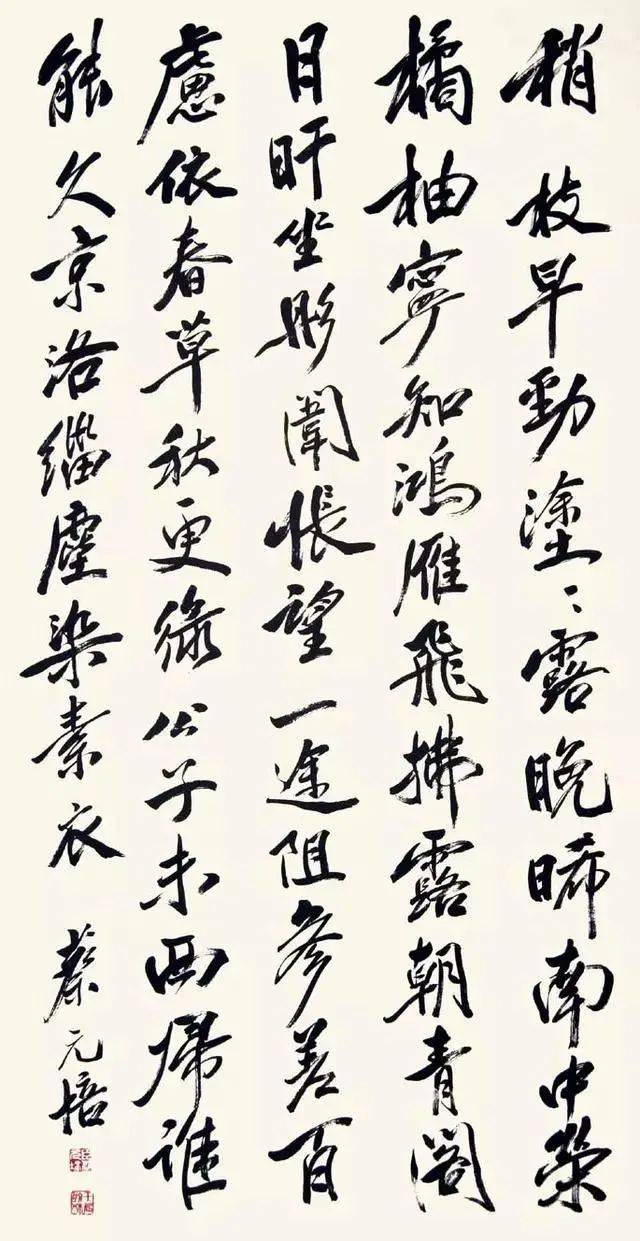 稍枝早勁塗〻露晚晞南中榮
橘柚寧知鴻雁飛拂露朝青閣
日旰坐彤闈悵望一途阻參差百
慮依春草秋更綠公子未西歸誰
能久京洛緇塵染素衣 蔡元培